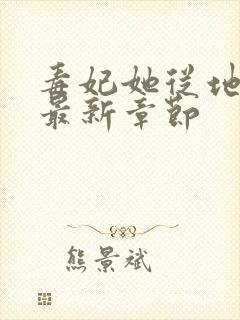 毒妃她從地
最新章節
熊景斌